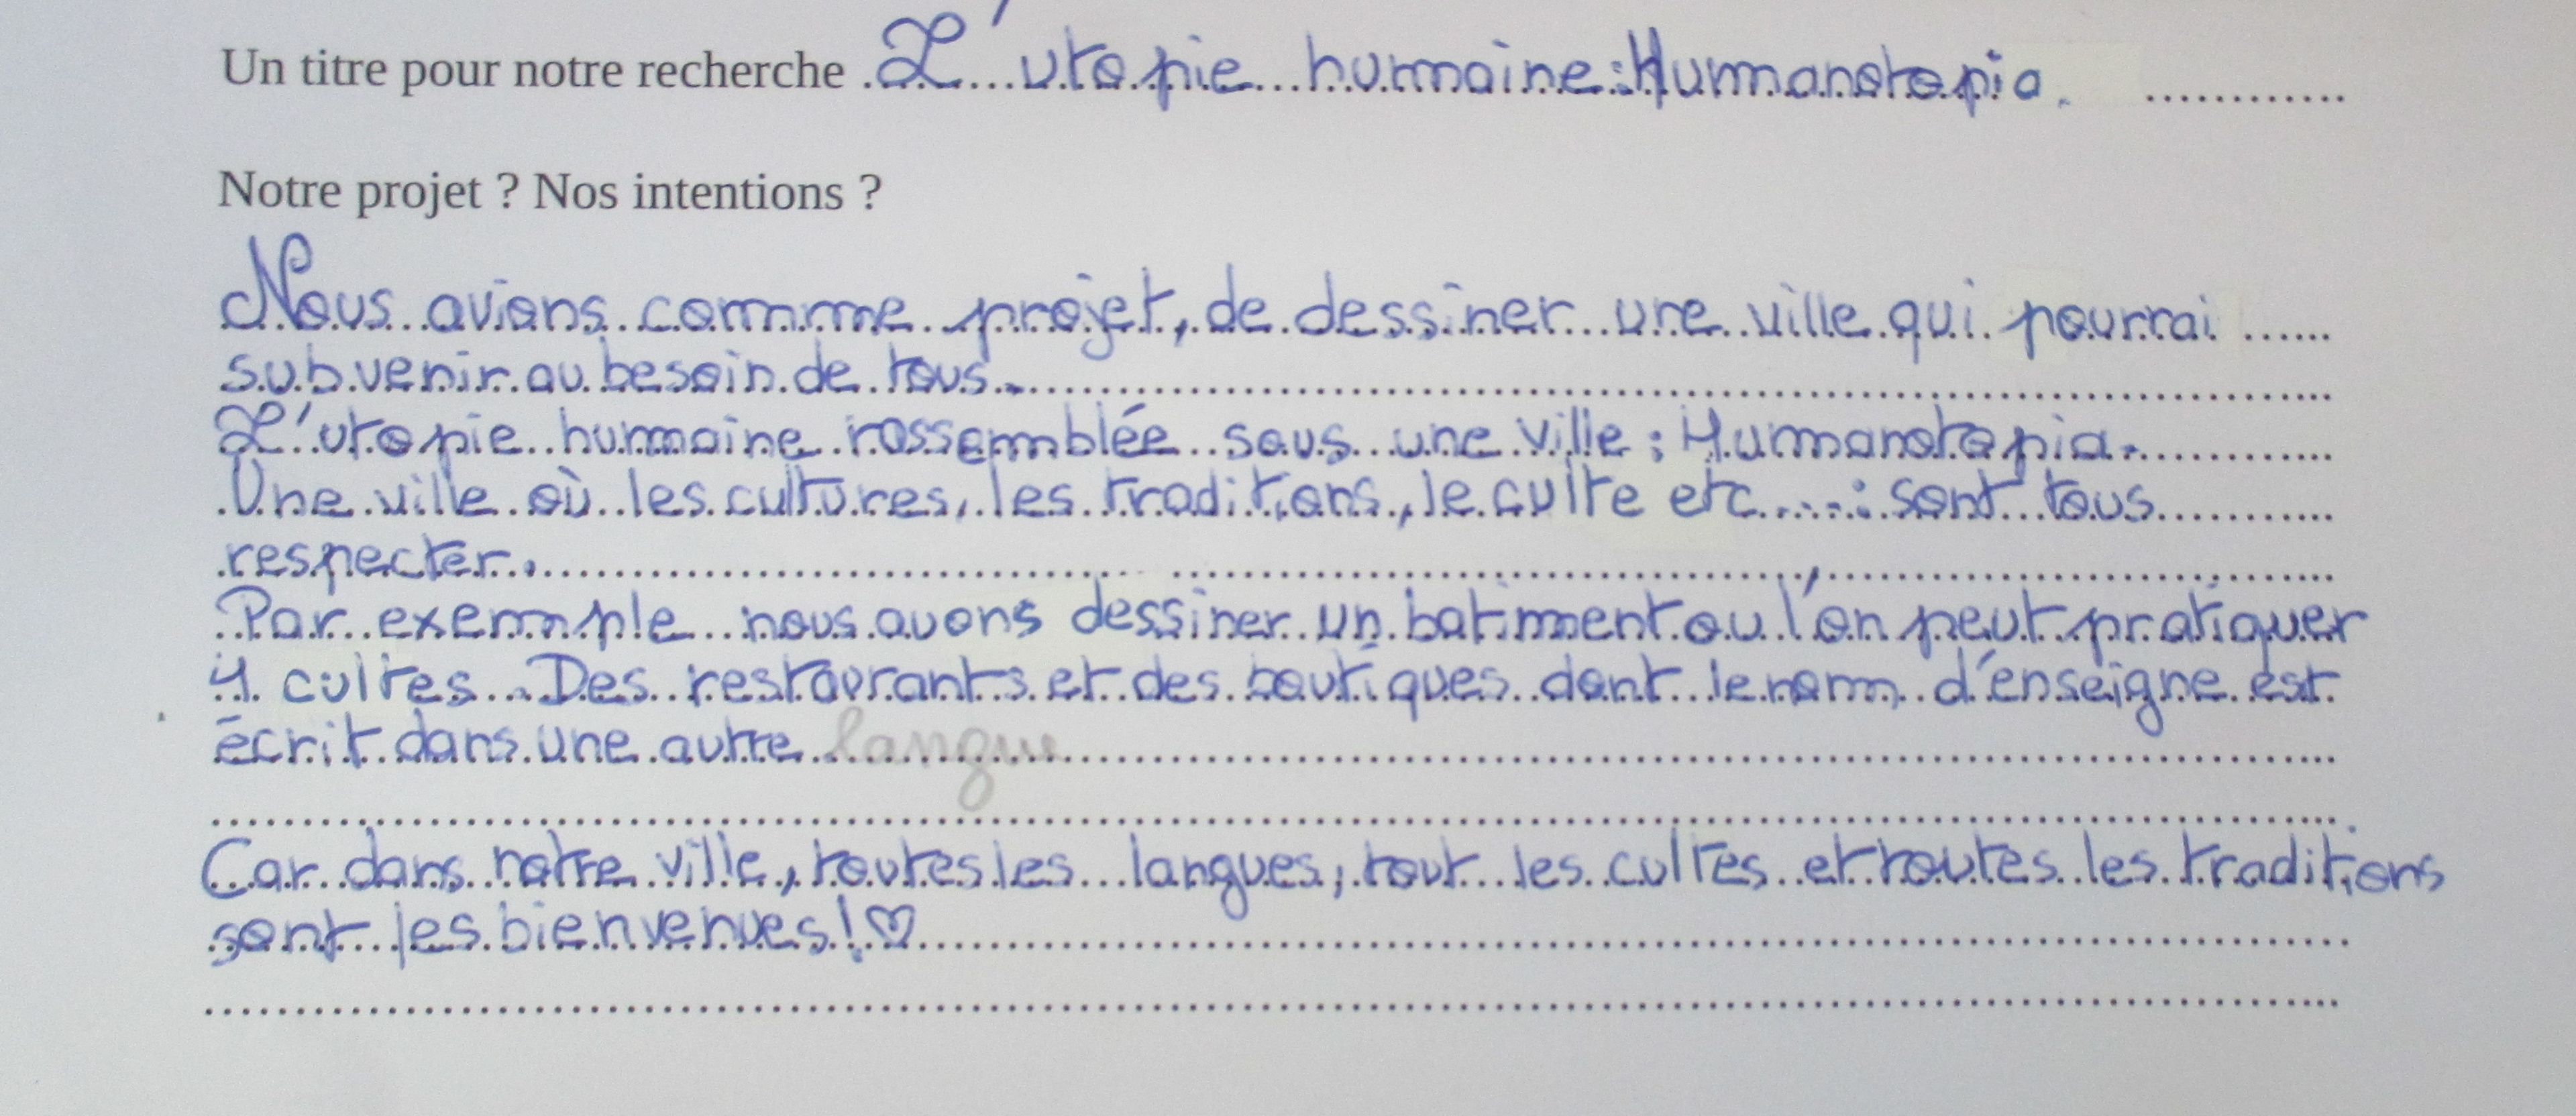 Un titre pour notre recherche L'utopie humaine : Humanotopia.
Notre projet ? Nos intentions ?
Nous avions comme projet, de dessiner une ville qui pourrai
subvenir au besoin de tous.
L'utopie humaine rassemblée sous une ville : Humanotopia.
Une ville où les cultures, les traditions, le culte etc...: sont tous
respecter.
Par exemple nous avons dessiner un batiment ou l'on peut pratiquer
4 cultes. Des restaurants et des boutiques dont le nom d'enseigne est
écrit dans une autre langue
Car dans notre ville, toutes les langues, tout les cultes et toutes les traditions
sont les bienvenues! ♡